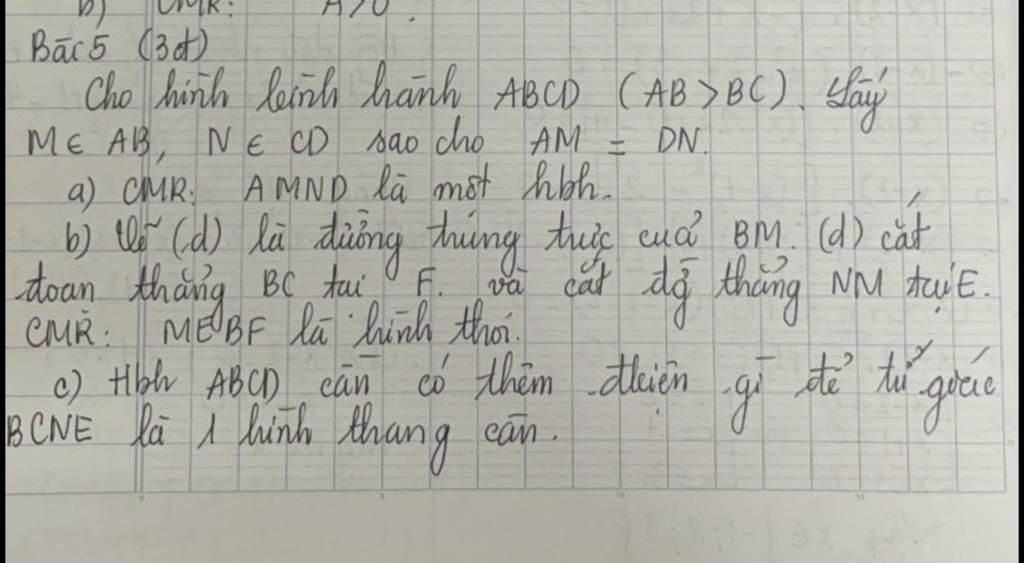 b) CMR: A>0.
Bài 5 (3đ)
Cho hình bình hành ABCD (AB > BC). Lấy
M ∈ AB, N ∈ CD sao cho AM = DN.
a) CMR: AMND là một hbh.
b) Vẽ (d) là đường trung trực của BM. (d) cắt
đoạn thẳng BC tại F. và cắt đg thẳng NM tại E.
CMR: MEBF là hình thoi.
c) Hbh ABCD cần có thêm đkiện gì để tứ giác
BCNE là 1 hình thang cân.